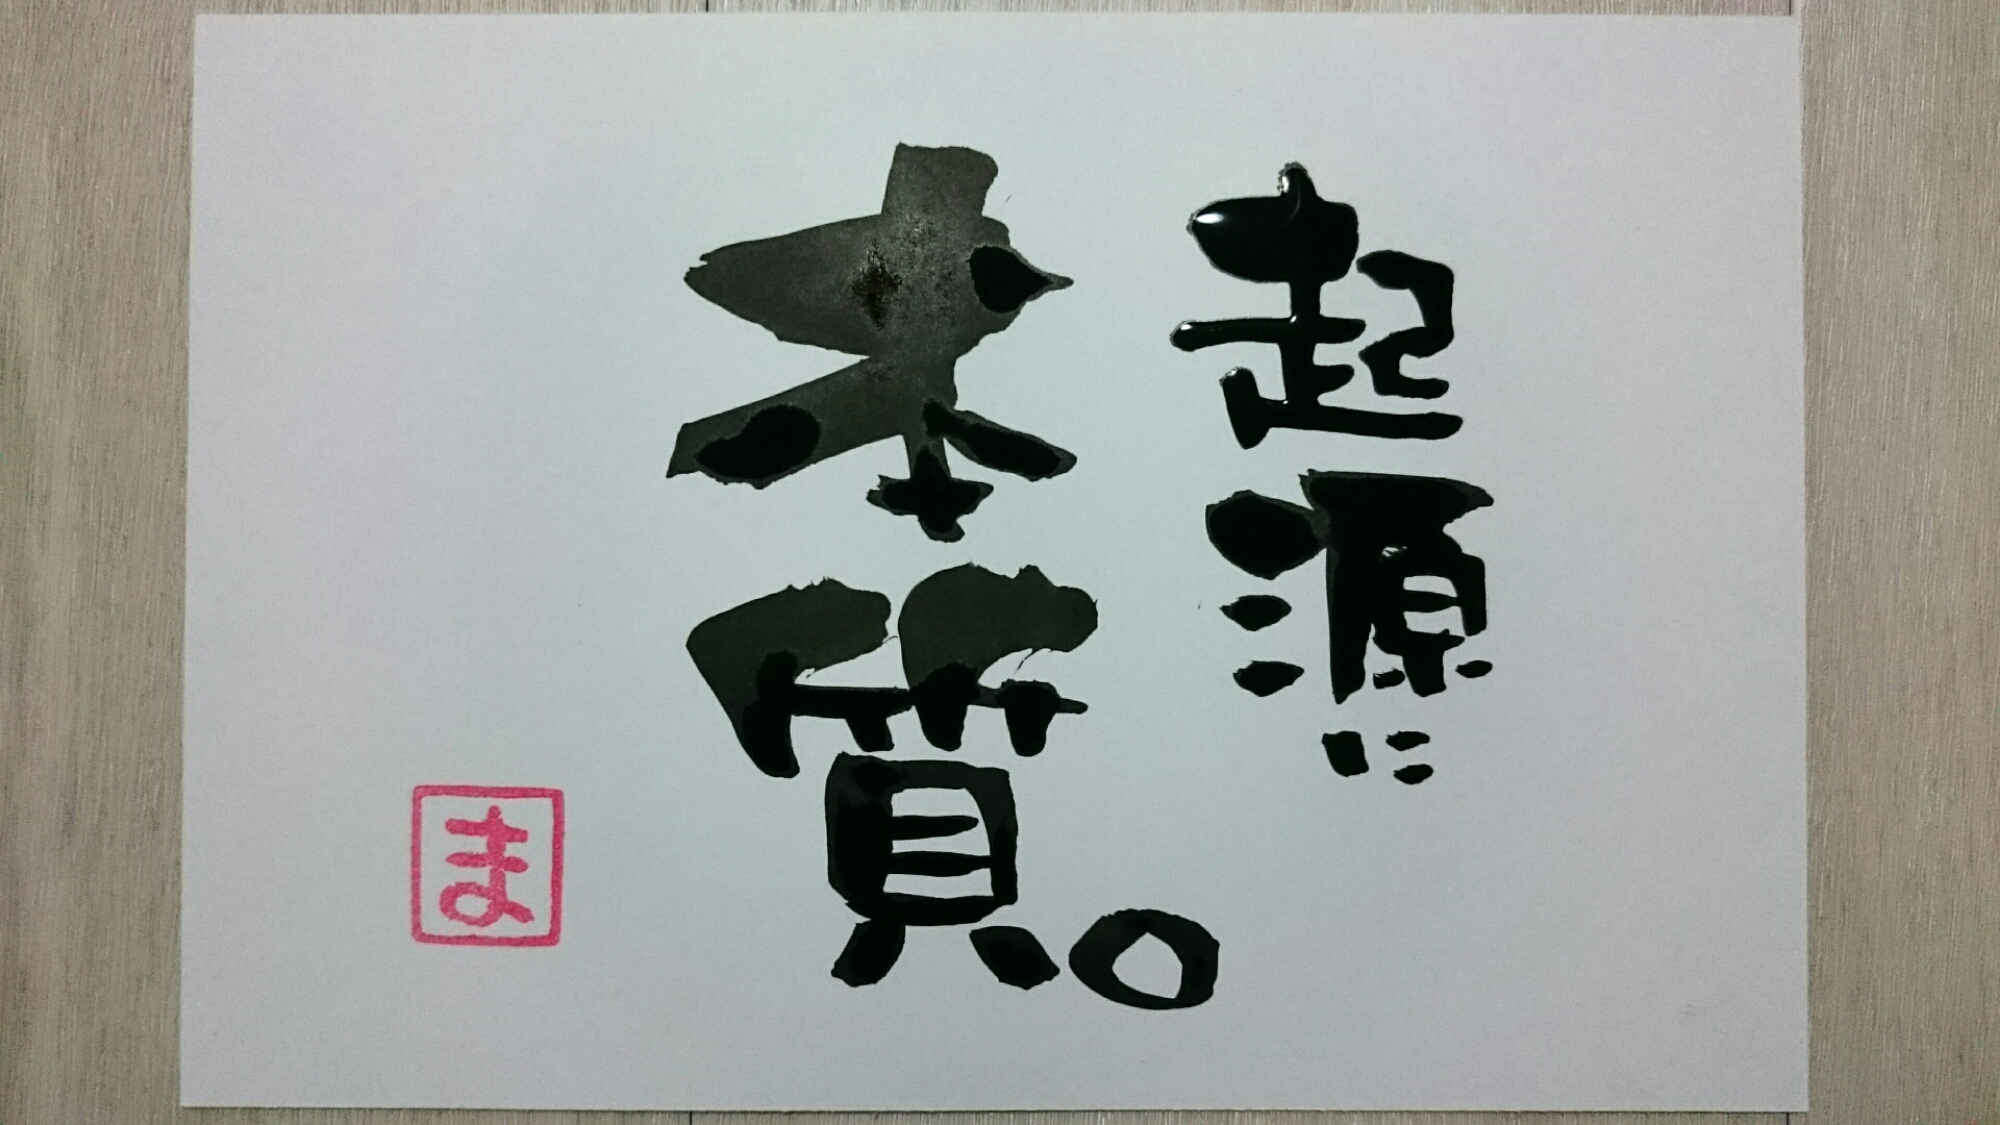 起源に
本質。
ま